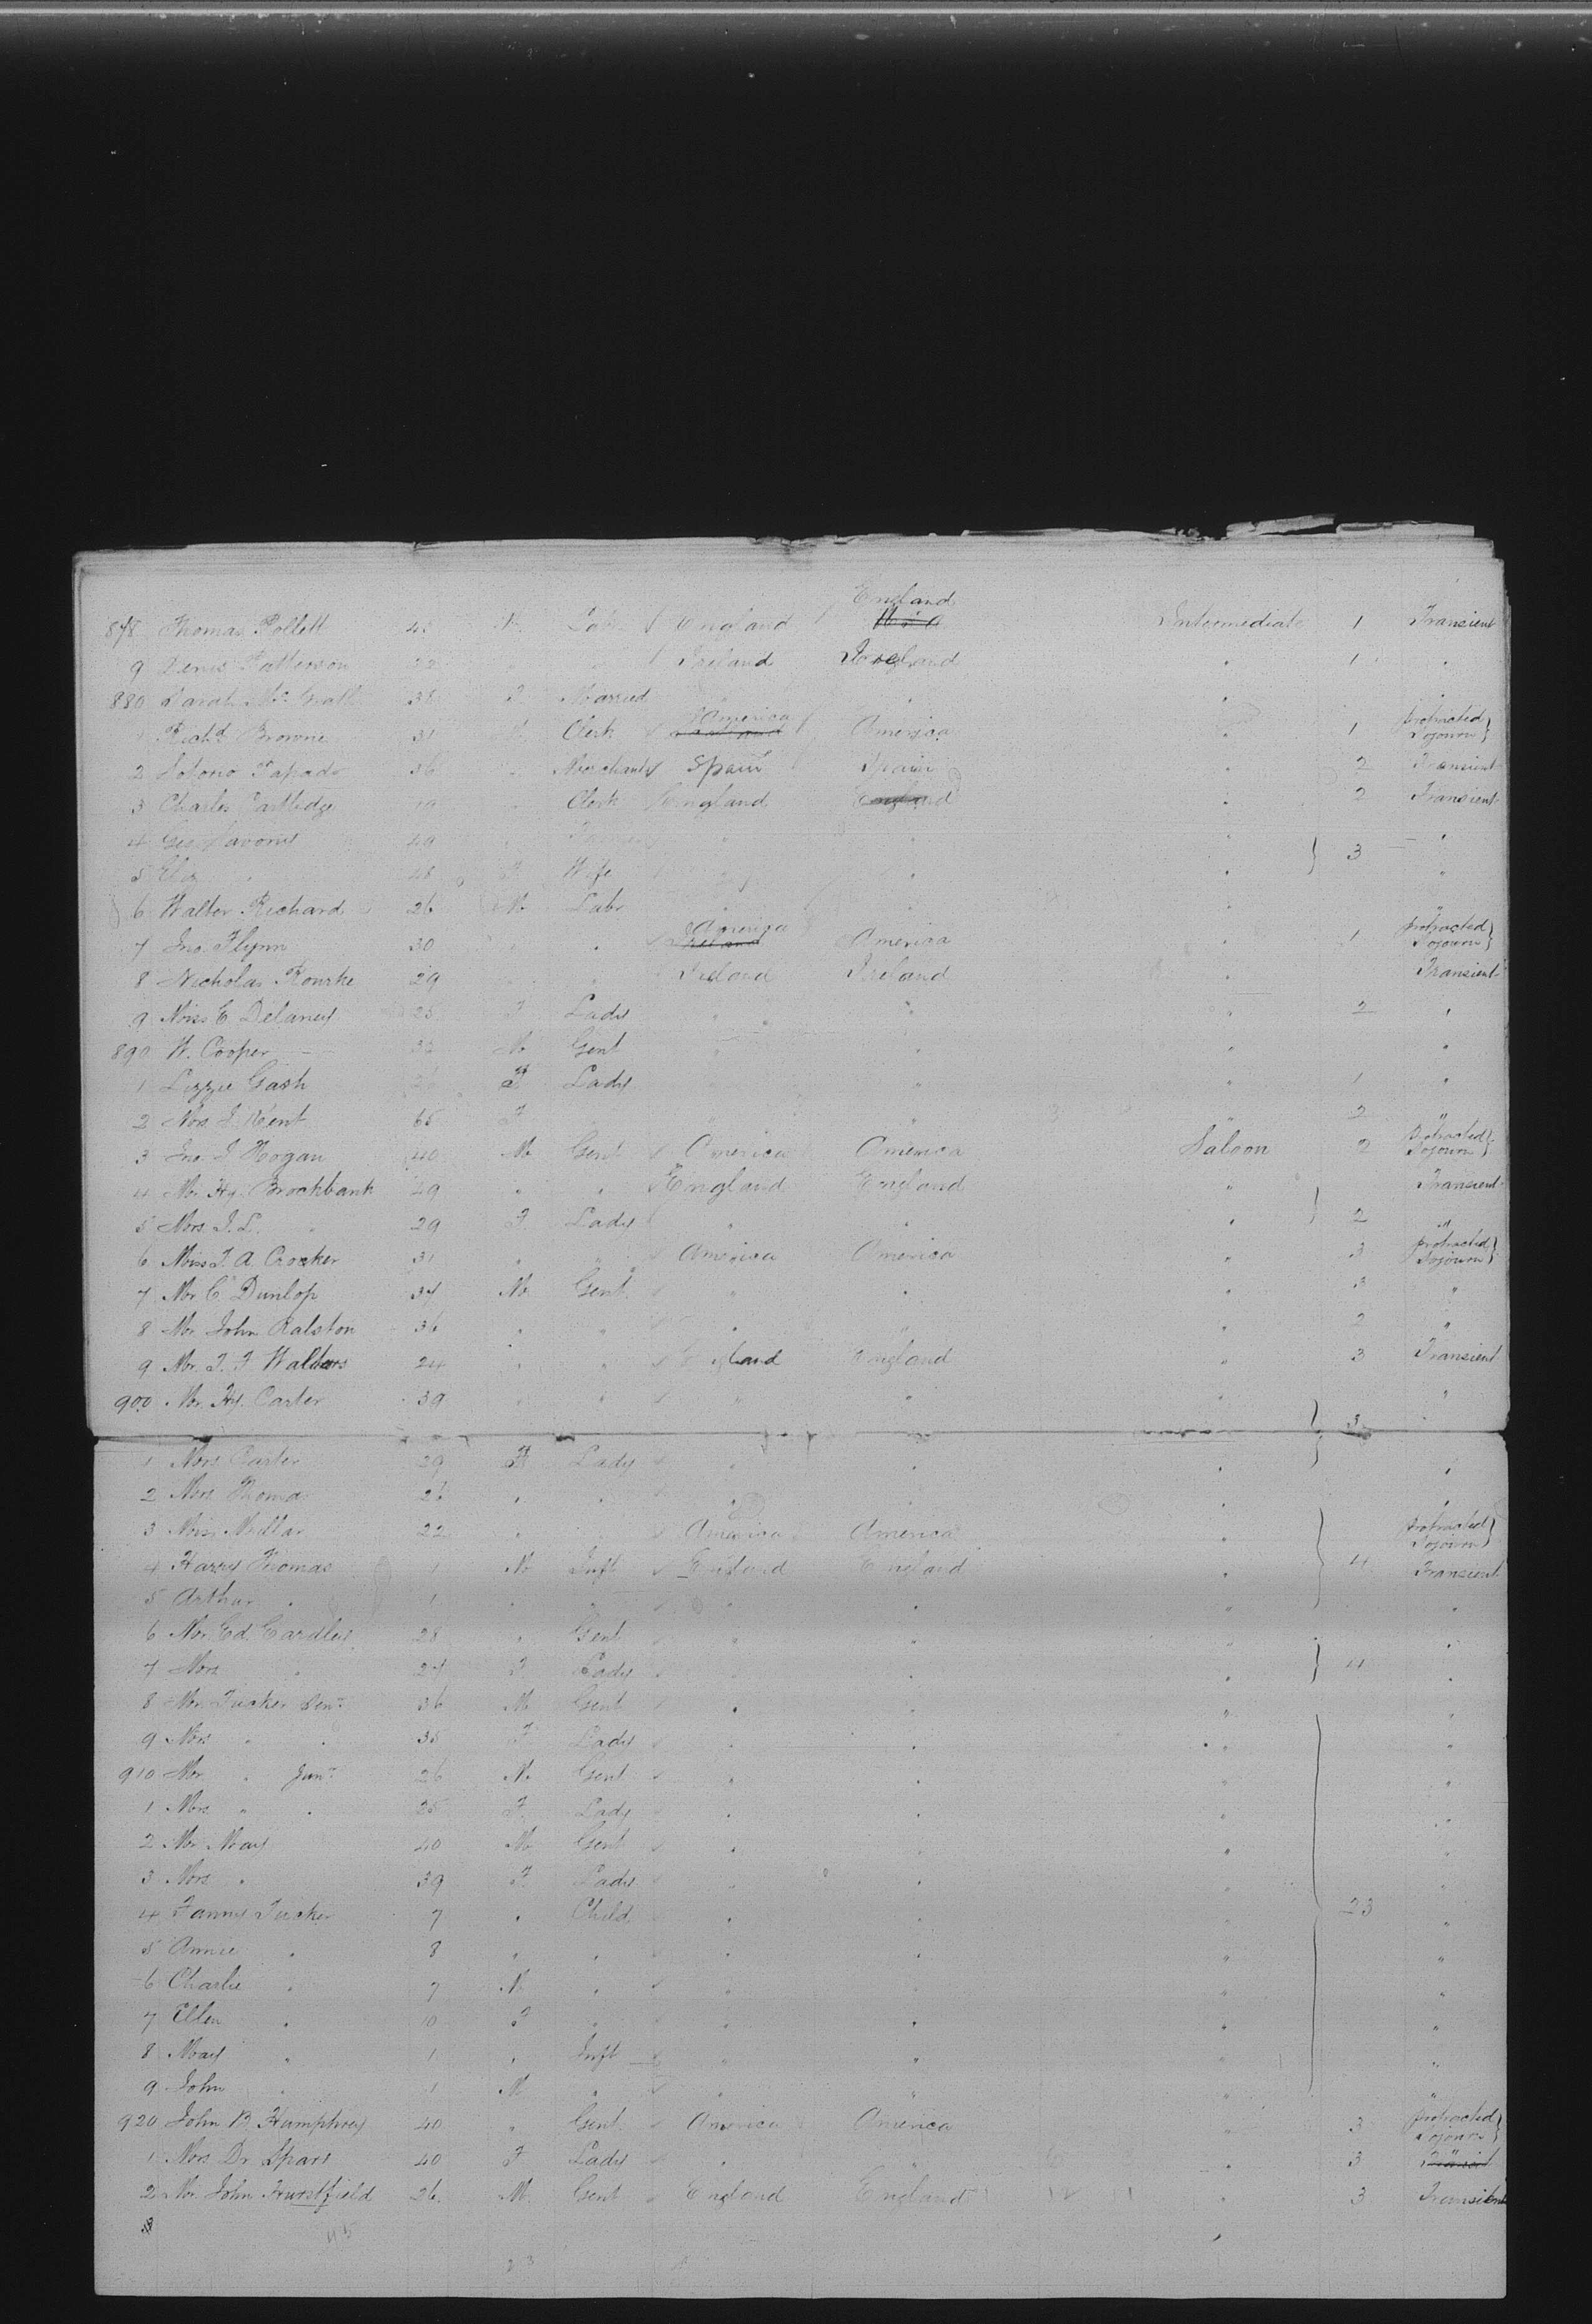 England
878 Thomas Pollett M Labr England U.S.A Intermediate 1 Transient
9 Denis Patterson 22 " " Ireland Ireland " 1 "
880 Sarah McGrath 38 F Married " " " "
1 Richd Browne 31 Clerk America Ireland America " 1 protracted Sojourn
2 Tapado 36 " Merchant Spain Spain " 2 Transient
3 Charles Partlidge " Clerk England England " 2 Transient
4 Geo 49 " " " " 3 "
5 Eliz " 48 F Wife " " " "
6 Walter Richard 26 M Labr " " " "
7 Jno. Flynn 30 " " America Ireland America " 1 protracted Sojourn
8 Nicholas Rourke 29 " " Ireland Ireland " Transient
9 Miss E Delaney 25 F Lady " " " 2 "
890 W. Cooper M Gent " " " "
1 Lizzie Gash F Lady " " " 1 "
2 Mrs J. Kent 65 F " " " " 2 "
3 Jno. J Hogan 40 M Gent America America Saloon 2 protracted Sojourn
4 Mr Hy. Brockbank 29 " " England England " Transient
5 Mrs J. L. " 29 F Lady " " " 2 "
6 Miss F. A. Crocker 31 " " America America " 3 protracted Sojourn
7 Mr C. Dunlop 34 M Gent " " " 3 "
8 Mr John Ralston 36 " " " " " 2 "
9 Mr. T. F Walders 24 " " England England " 3 Transient
900 Mr. Hy. Carter 39 " " " " " 3 "
1 Mrs Carter 29 F Lady " " " "
2 Mrs Thomas 26 " " " " " "
3 Miss Millar 22 " " America America " protracted Sojourn
4 Harry Thomas 1 M Inft England England " 4 Transient
5 Arthur " 1 " " " " " "
6 Mr Ed. Eardley 28 " Gent " " " "
7 Mrs " 27 F Lady " " " 4 "
8 Mr Tucker Senr 36 M Gent " " " "
9 Mrs " " 35 F Lady " " " "
910 Mr " Junr 26 M Gent " " " "
1 Mrs " " 25 F Lady " " " "
2 Mr May 40 M Gent " " " "
3 Mrs " 39 F Lady " " " "
4 Fanny Tucker 7 " Child " " " 23 "
5 Annie " 8 " " " " " "
6 Charlie " 7 M " " " " "
7 Ellen " 10 F " " " " "
8 May " 1 " Inft " " " "
9 John " 1 M " " " " "
920 John B Humphrey 40 " Gent America America " 3 protracted Sojourn
1 Mrs Dr. Spars 40 F Lady " " " 3
2 Mr. John Hurstfield 26 M Gent England England " 3 Transient